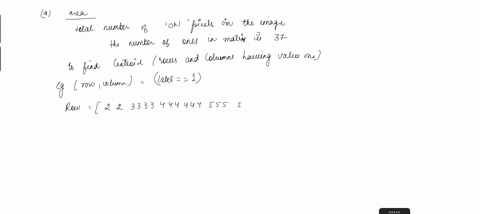 (a) area
total number of 'ON' pixels in the image
the number of ones in matrix is 31
to find Centroid (rows and columns having value one)
eg [row, column] = (label == 1)
Row = [ 2 2 3 3 3 3 4 4 4 4 4 4 5 5 5 5